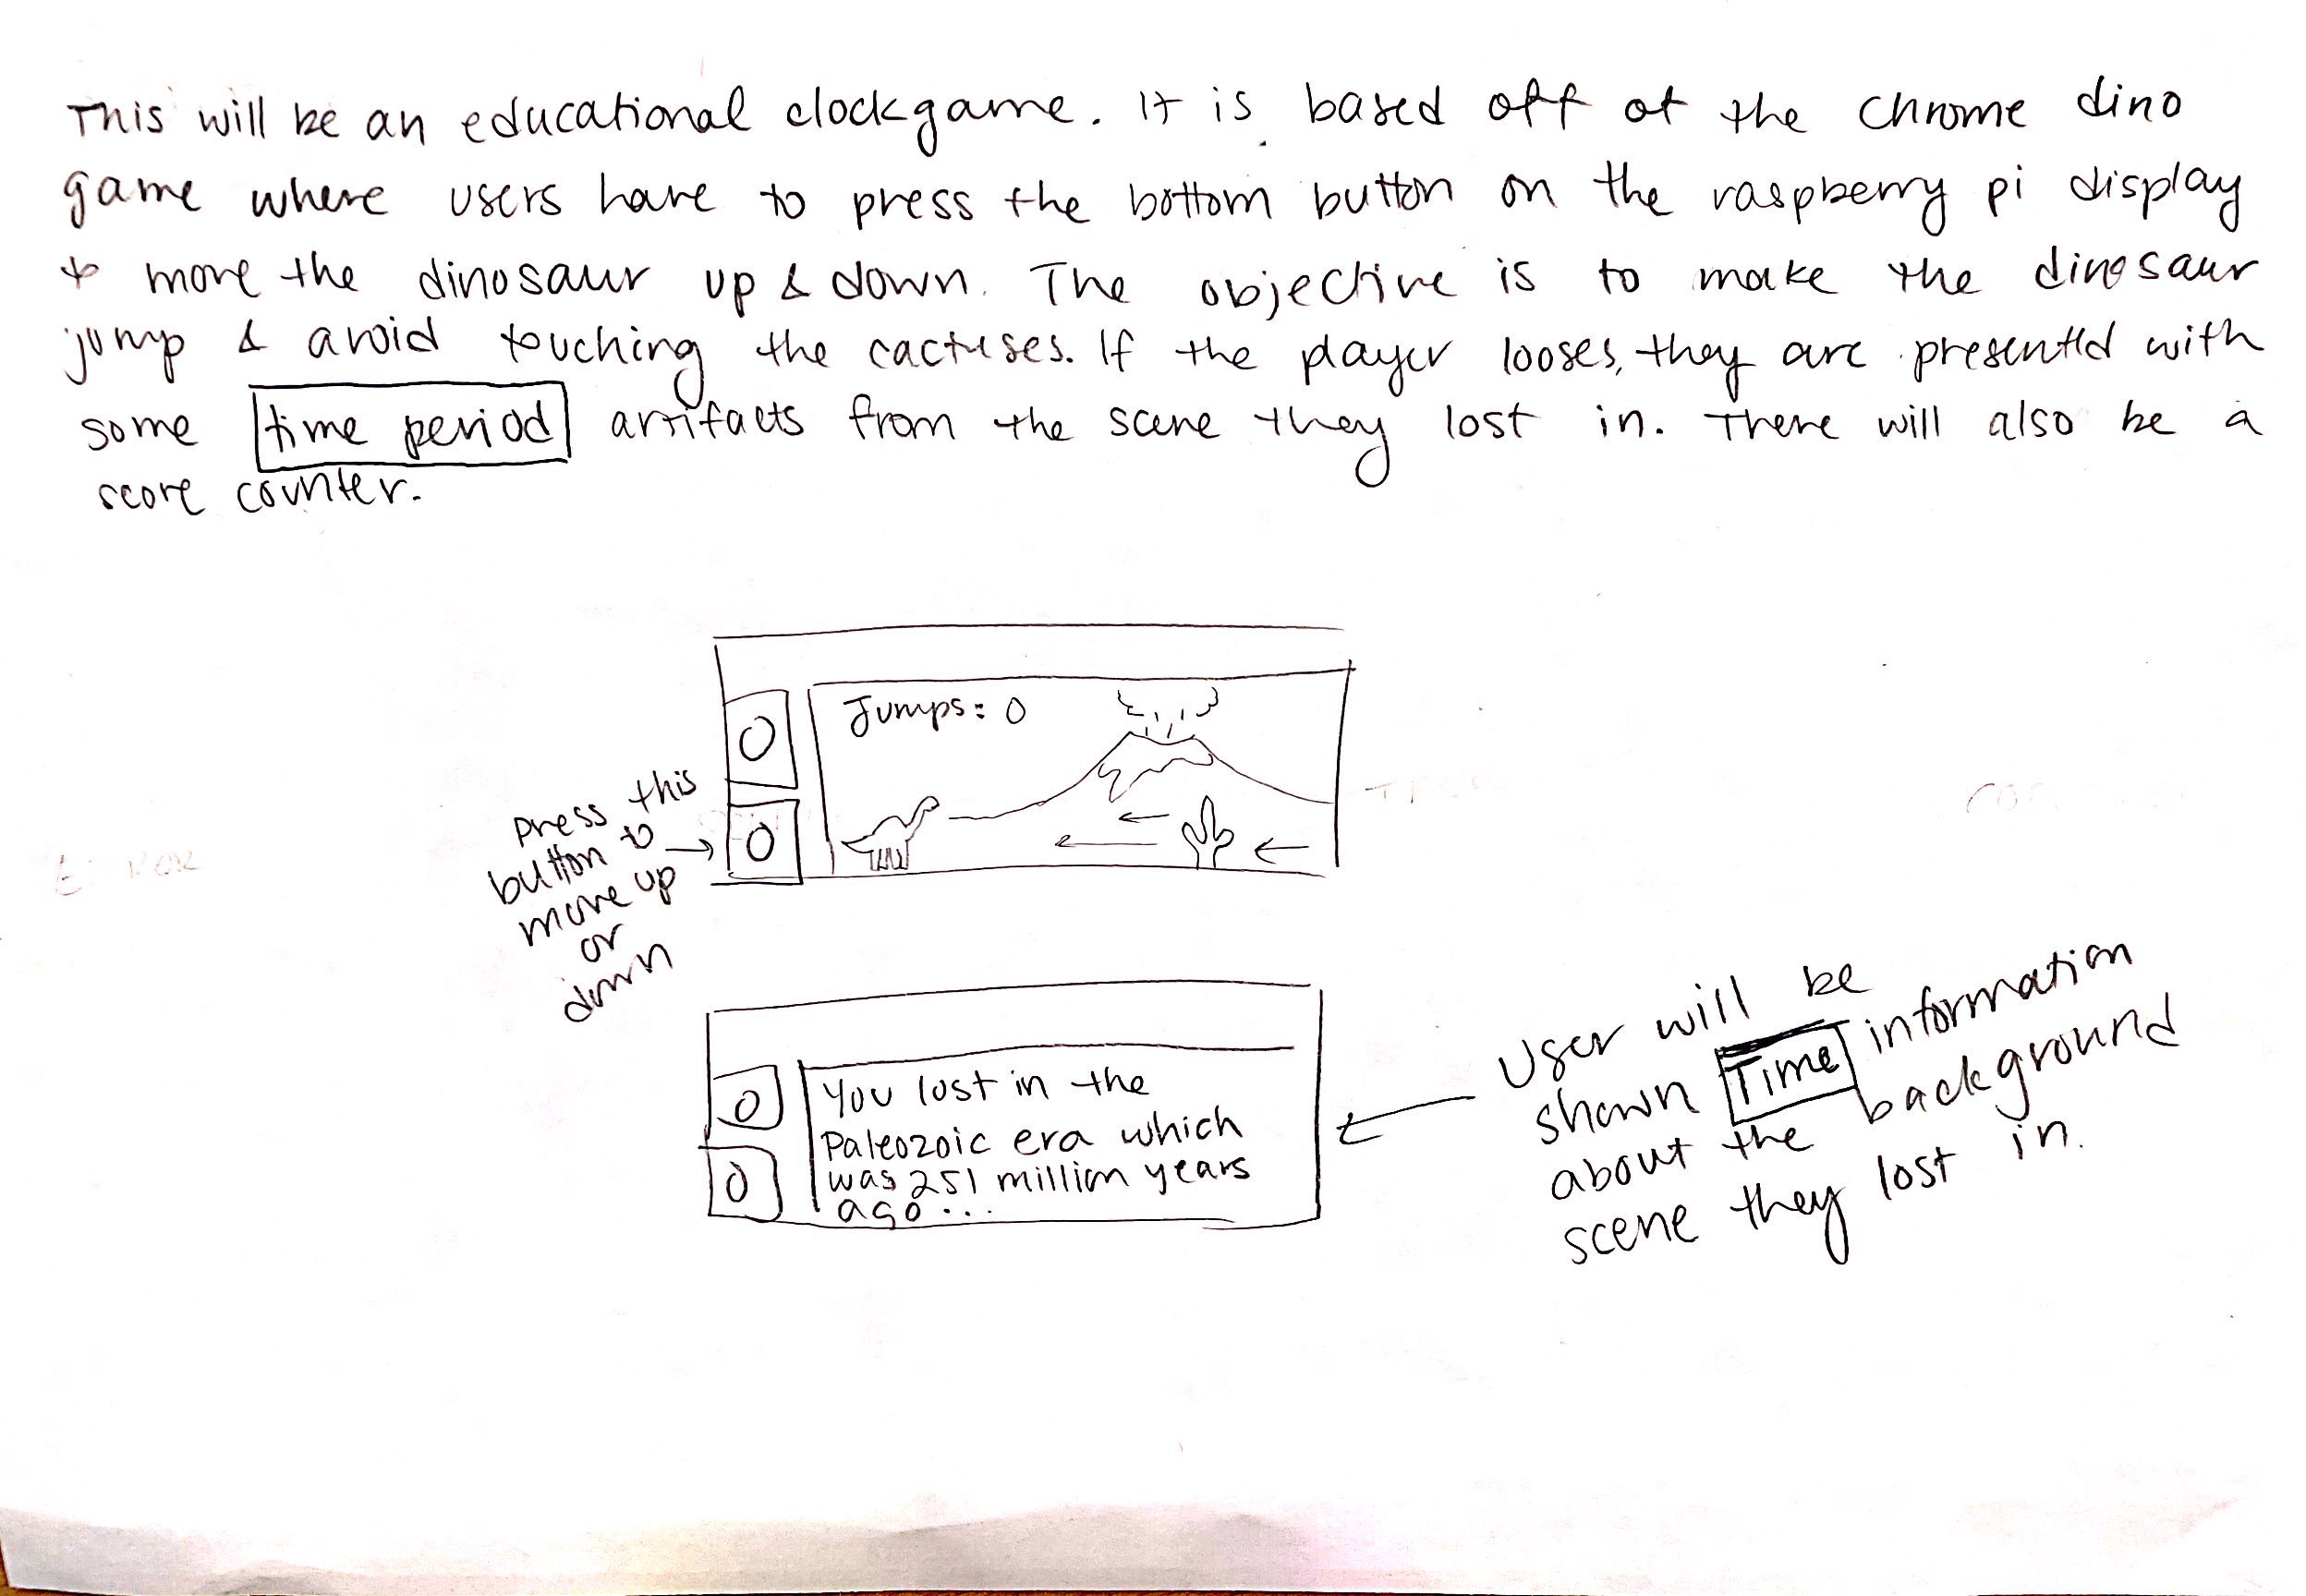 This will be an educational clock game. It is based off of the chrome dino
game where users have to press the bottom button on the raspberry pi display
to move the dinosaur up & down. The objective is to make the dinosaur
jump & avoid touching the cactuses. If the player looses, they are presented with
some time period artifacts from the scene they lost in. There will also be a
score counter.
Jumps: 0
press this
button to
move up
or
down
You lost in the
Paleozoic era which
was 251 million years
ago...
User will be
shown Time information
about the background
scene they lost in.